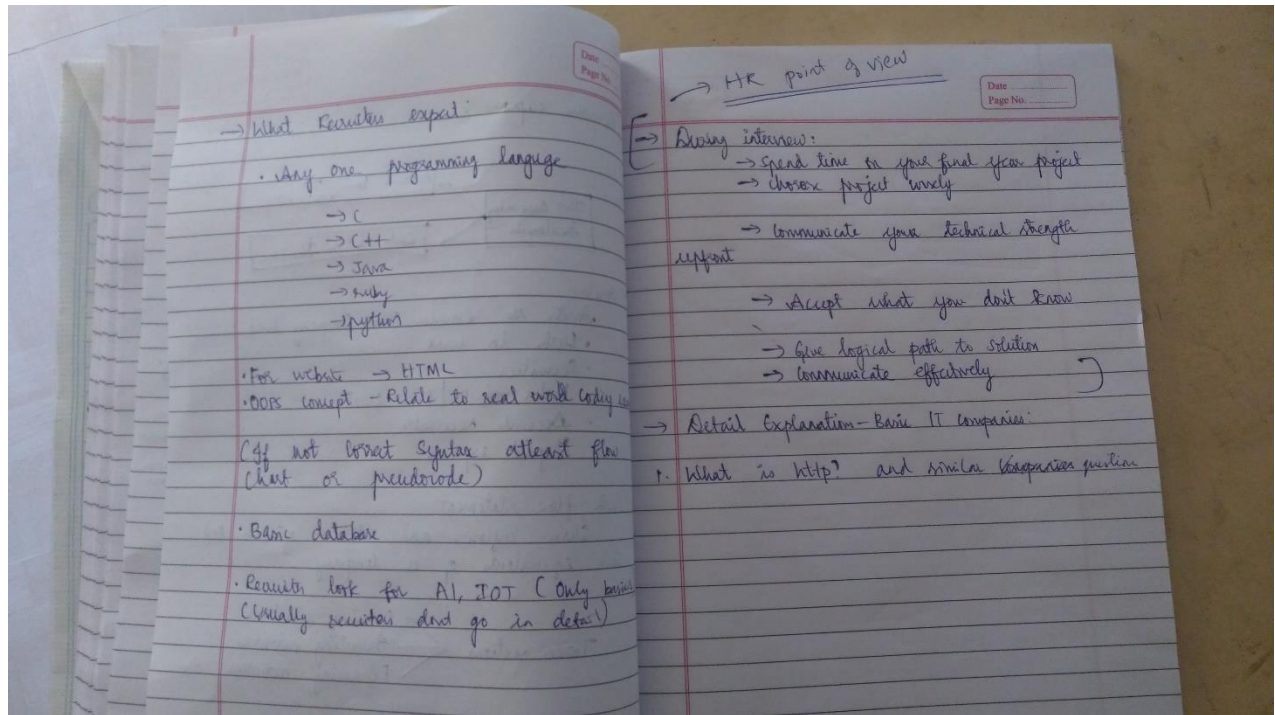 Date
Page No.
→ What Recruiters expect:
• Any one programming languge
→ C
→ C++
→ Java
→ ruby
→ python
• For website → HTML
• OOPS concept - Relate to real world coding
(If not correct syntax atleast flow
chart or pseudocode)
• Basic database
• Recruiters look for AI, IOT (Only basics
(Usually recruiters dont go in detail)
→ HR point of view
Date
Page No.
→ During interview:
→ Spend time on your final year project
→ project wisely
→ Communicate your technical strength
upfront
→ Accept what you don't know
→ Give logical path to solution
→ Communicate effectively
→ Detail Explanation - Basic IT companies:
1. What is http? and similar question